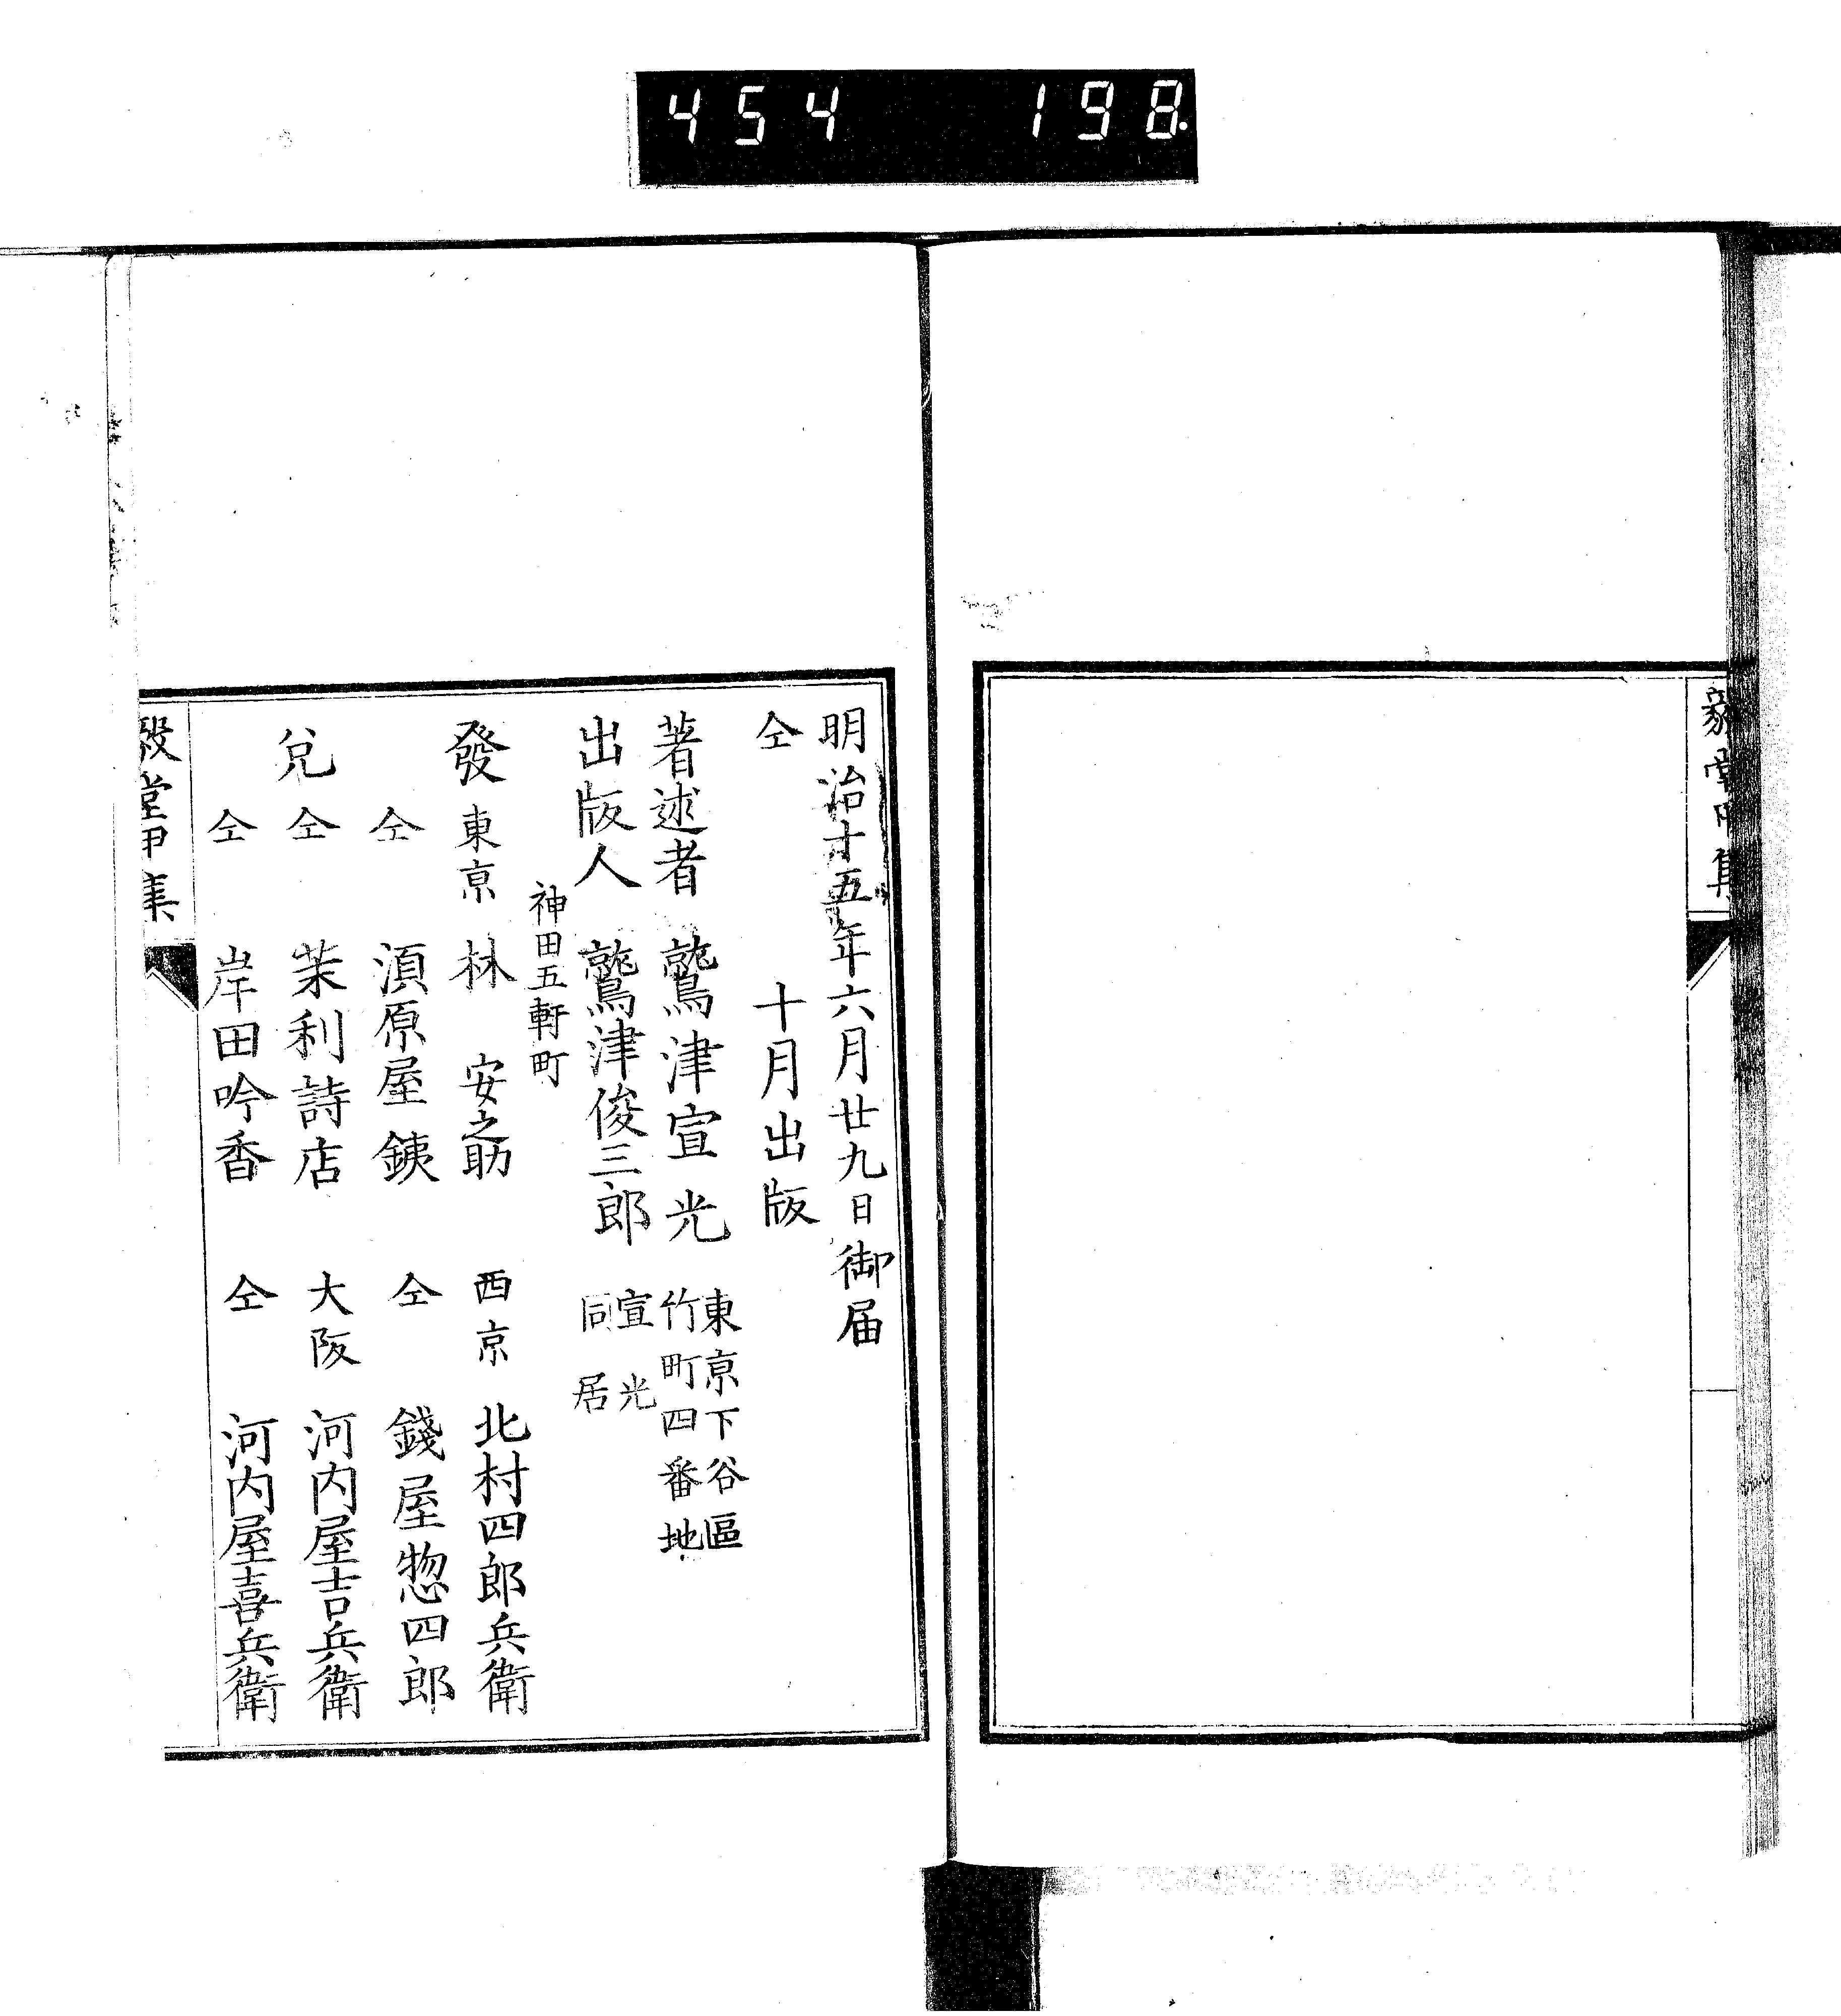 454 198
明治十五年六月廿九日御届
仝 十月出版
著述者 鷲津宣光 東京下谷區竹町四番地
出版人 鷲津俊三郎 宣光同居
神田五軒町
發兌
東京 林安之助
仝 須原屋銕
仝 茉利詩店
仝 岸田吟香
西京 北村四郎兵衛
仝 錢屋惣四郎
大阪 河内屋吉兵衛
仝 河内屋喜兵衛